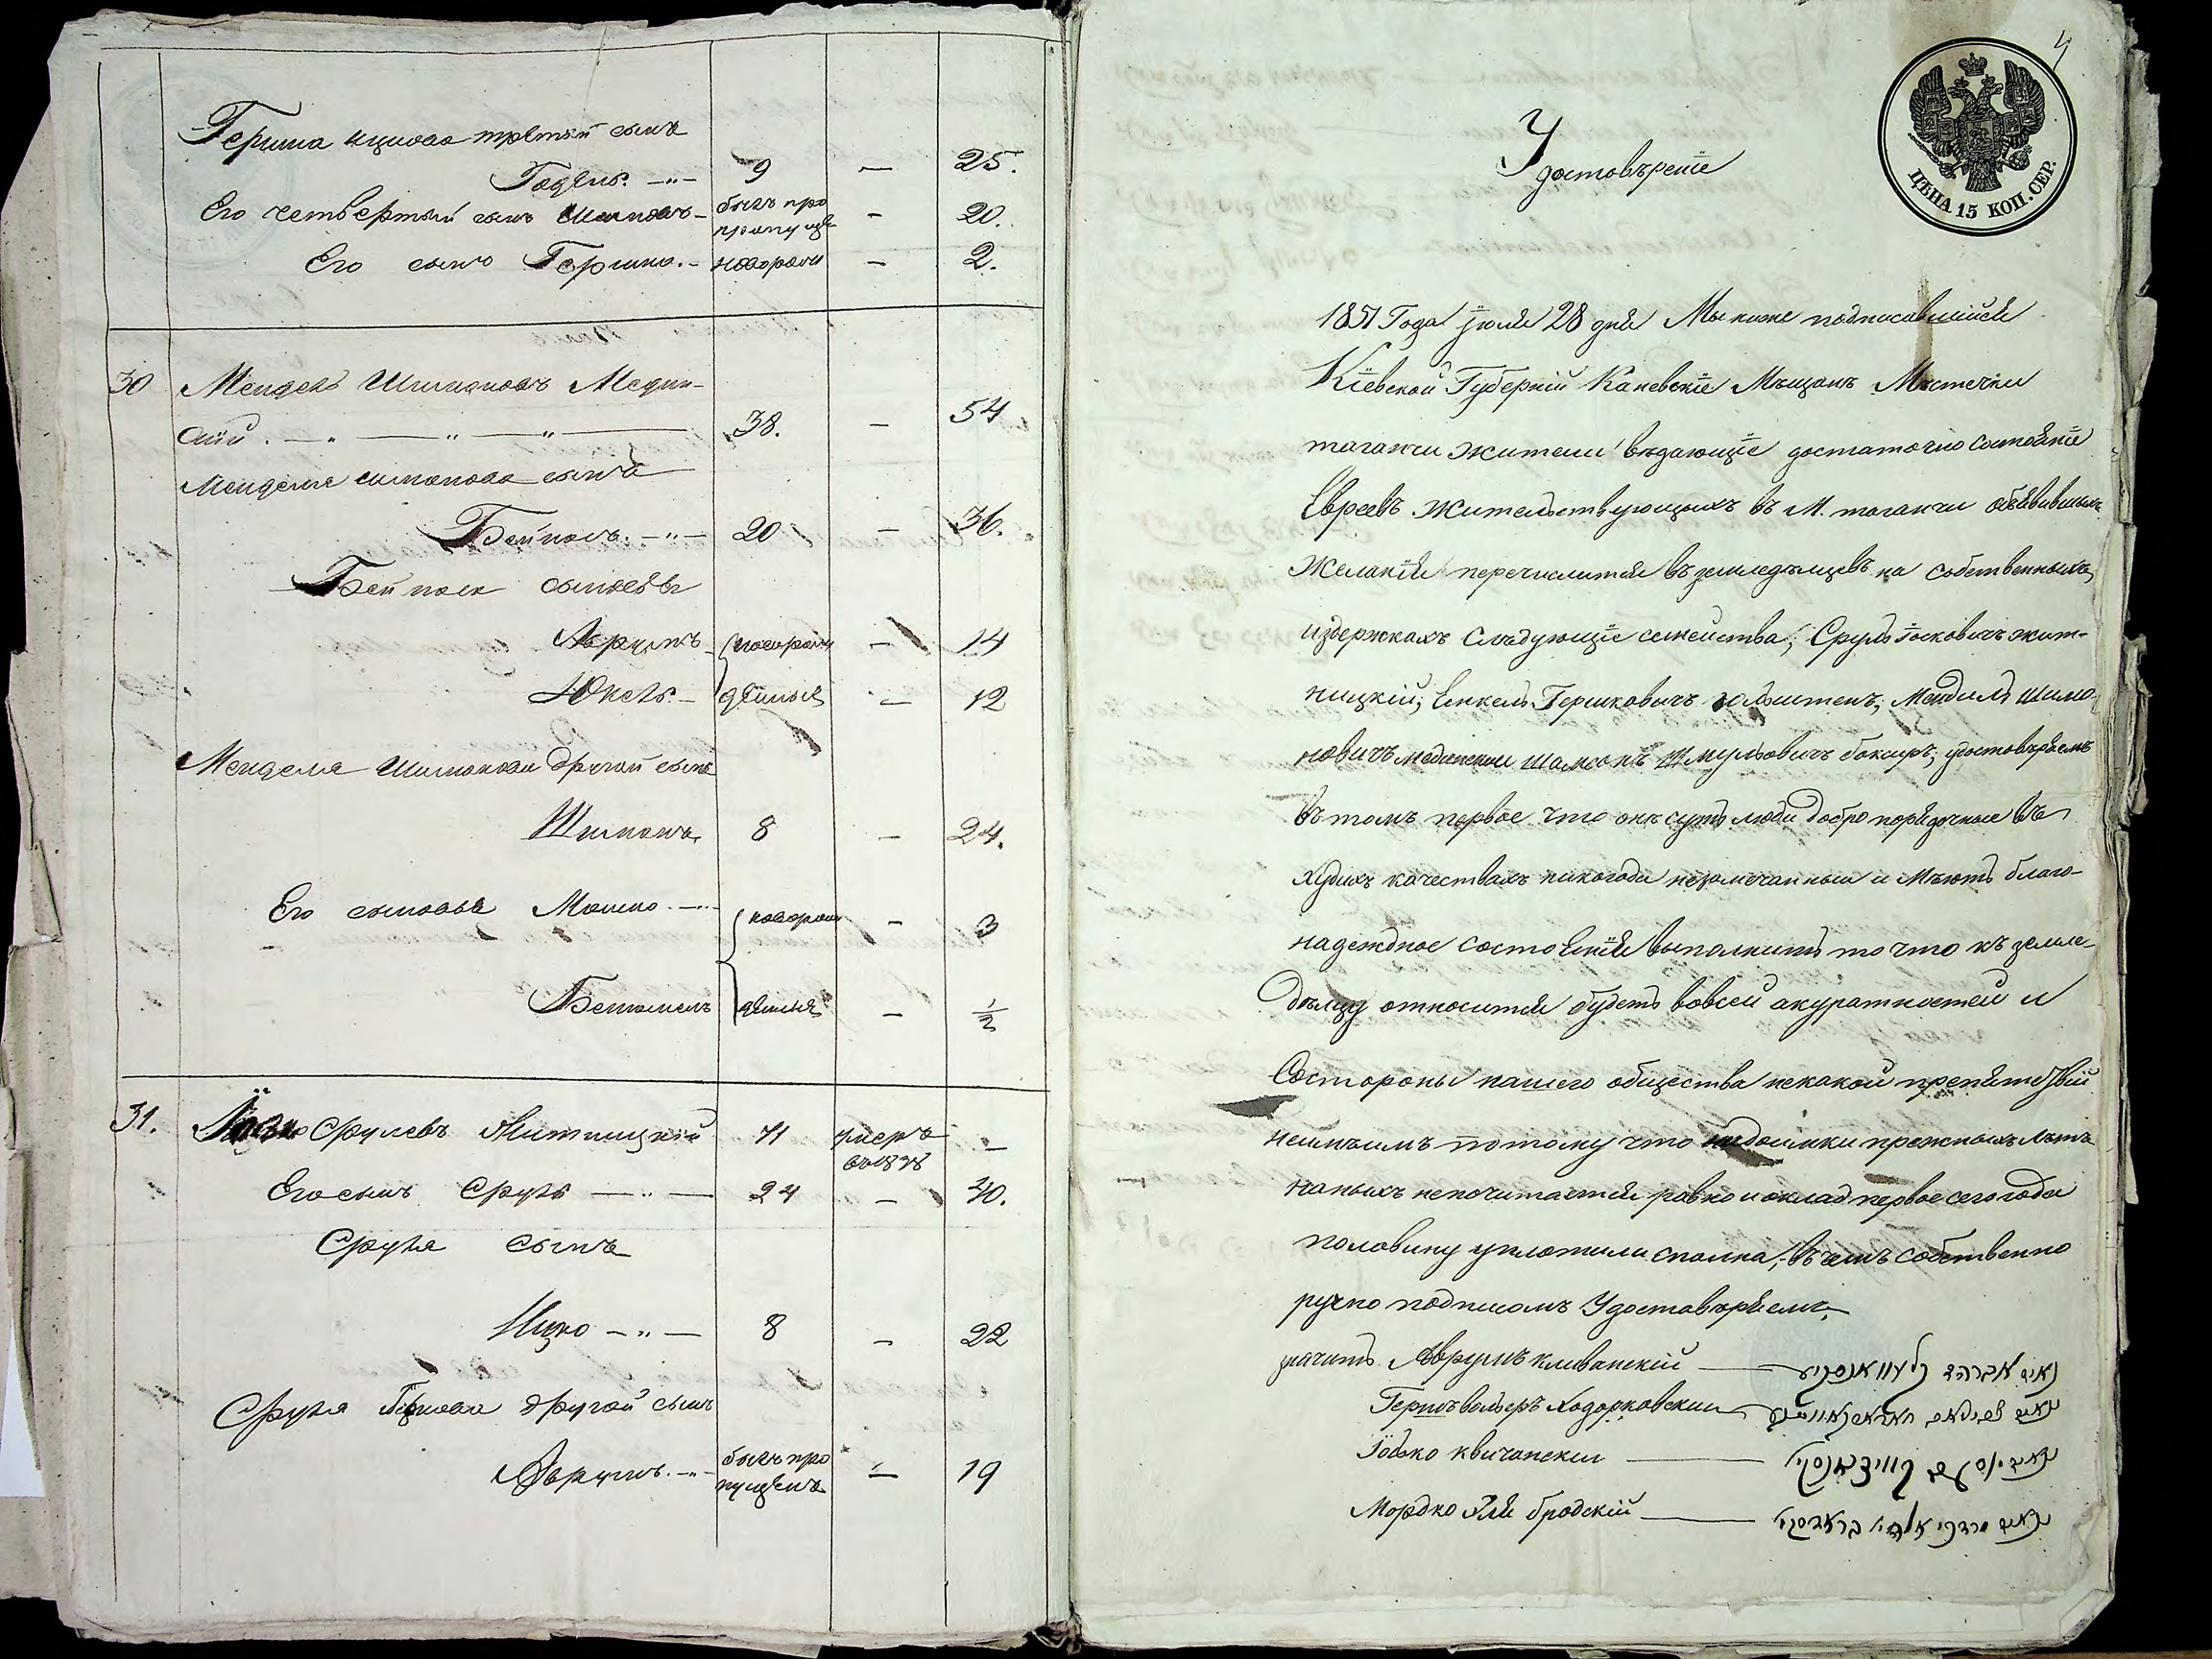 Гершка Ицкова третий сынъ
Годель. —"— 9 — 25.
Его четвертый сынъ Шимонъ — былъ про
пропущен — 20.
Его сынъ Гершко. — новорожд — 2.
30 Мендель Шимоновъ Медин-
скій. —"— —"— —"— 38. — 54
Менделя Симонова сынъ
Бейнось. —"— 20 — 36.
Бейноса сыновья
Аврумъ новорожд — 14
Юкель. — денныя — 12
Менделя Шимонова другой сынъ
Шимонъ 8 — 24.
Его сыновья Мошко. —"— новорожд — 3
денныя — 1/2
31. Іосько Срулевъ Житницкій 41 умеръ
въ 1848 —
Его сынъ Сруль —"— 24 — 40.
Сруля сынъ
Ицко —"— 8 — 22
Сруля другой сынъ
Аврумъ. —"— былъ про
пущенъ — 19
4
ЦѢНА 15 КОП. СЕР.
Удостовѣреніе
1851 Года Іюля 28 дня Мы ниже подписавшіися
Кіевской Губерніи Каневскіе Мѣщанъ Мѣстечки
таганчи жители вѣдающіе достаточно состояніе
Евреевъ жительствующихъ въ М. таганчи объявившихъ
Желаніи перечислится въ земледѣльцевъ на собственныхъ
издержкахъ слѣдующіе семейства; Сруль Іосковичъ жит-
ницкій; Енкель Гершковичъ Мендиль Шимо-
новичъ мединский Шамсонъ Шмульовичъ боксиръ; удостовѣряемъ
въ томъ первое что онѣ суть люди добро порядочные въ
худихъ качествахъ никогда незамѣчанные и Мѣютъ благо-
надеждное состояніи выполнить то что къ земле-
дѣльцу относится будетъ вовсей акуратностей и
Состороны нашего общества некакой препятствій
неимѣимъ потому что недоимки прежныхъ лѣтъ
наныхъ непочитается ровно и оклад первое сего года
половину уплотили сполна; въ чемъ собственно
ручно подписомъ Удостовѣряемъ
значитъ Аврумъ кливанскій — נאום אברהם קליוואנסקיע
Гершъ вольеръ Ходорковский —
Іосько квичанский —
Мордко Эля бродскій — נאום מרדכי אליהו בראדסקי